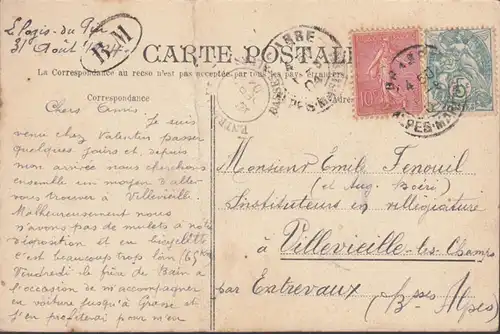 L. Pagis. du Var
31 Août 1904
BM
CARTE POSTALE
La Correspondance au recto n'est pas acceptée par tous les pays étrangers
Correspondance
Adresse
10
5
Chers Amis Je suis
venu chez Valentin passer
quelques jours et depuis
mon arrivée nous cherchons
ensemble un moyen d'aller
vous trouver à Villevieille.
Malheureusement nous
n'avons pas de mulets à notre
disposition et en bicyclette
c'est beaucoup trop loin (65 Km)
Vendredi le frère de Bain a
l'occasion de m'accompagner
en voiture jusqu'à Grasse et
j'en profiterai pour m'en
Monsieur Émile Fenouil
(et Aug. Boéri)
Instituteurs en villégiature
à Villevieille-les Champs
par Entrevaux (Bses Alpes)